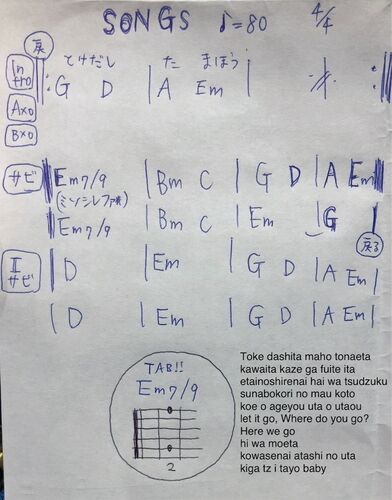 SONGS ♩=80 4/4
戻
Intro
Aメロ
Bメロ
とけだし た まほう
G D | A Em |
サビ
Em7/9 | Bm C | G D | A Em
(ミソシレファ#)
Em7/9 | Bm C | Em | G
戻る
II サビ
D | Em | G D | A Em |
| D | Em | G D | A Em |
TAB!!
Em7/9
2
Toke dashita maho tonaeta
kawaita kaze ga fuite ita
etainoshirenai hai wa tsudzuku
sunabokori no mau koto
koe o ageyou uta o utaou
let it go, Where do you go?
Here we go
hi wa moeta
kowasenai atashi no uta
kiga tz i tayo baby